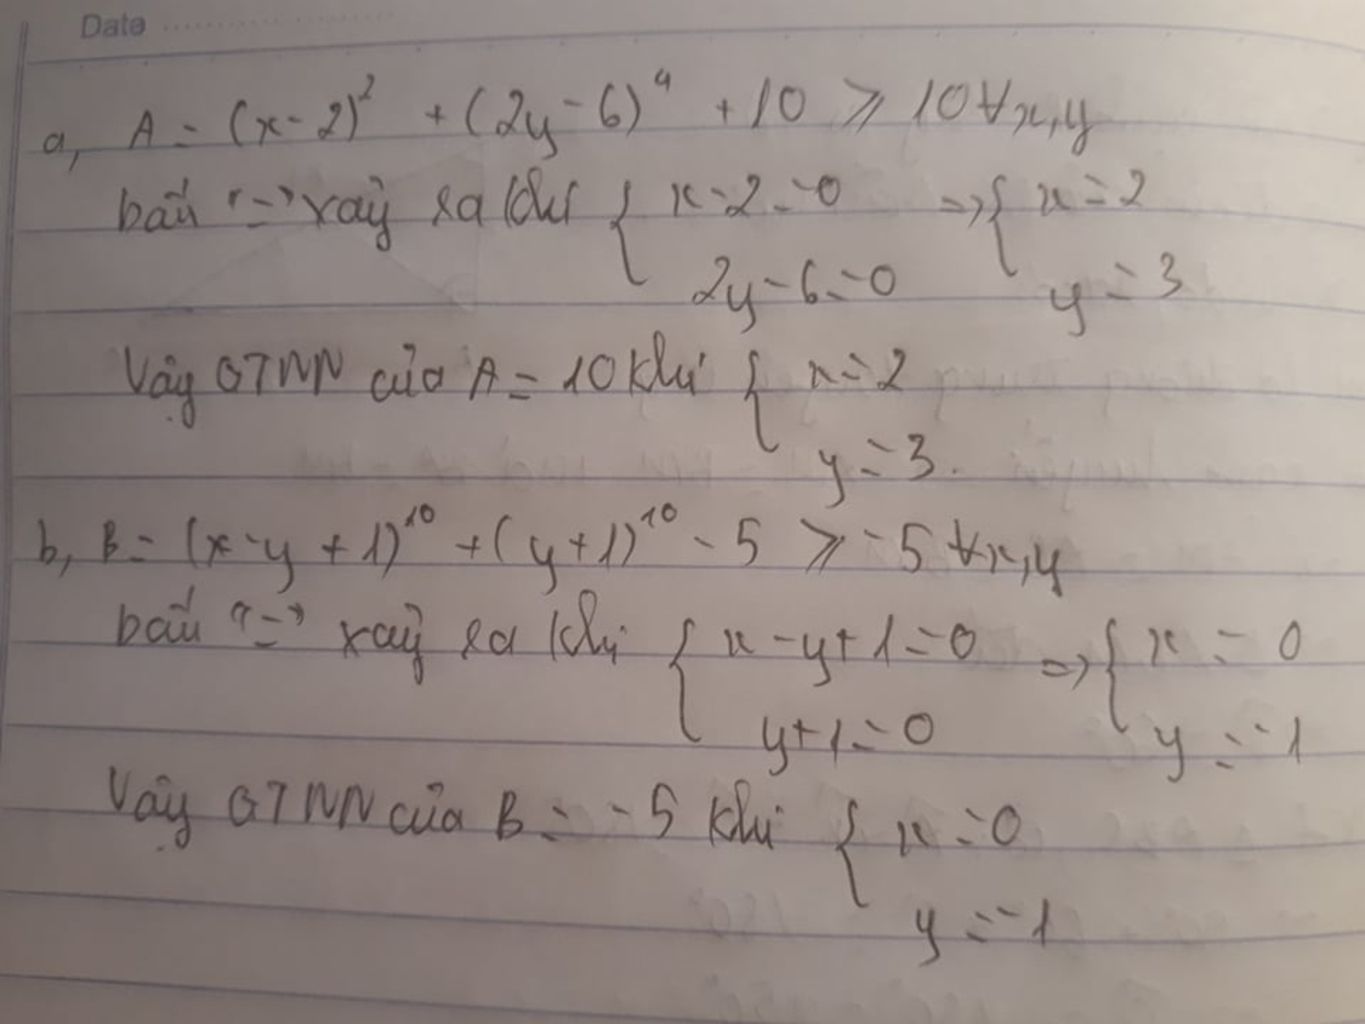 Date
a, A = (x-2)² + (2y-6)⁴ + 10 ≥ 10 ∀x,y
Dấu "=" xảy ra khi { x-2=0 => { x=2
2y-6=0 y=3
Vậy GTNN của A = 10 khi { x=2
y=3.
b, B = (x-y+1)¹⁰ + (y+1)¹⁰ - 5 ≥ -5 ∀x,y
Dấu "=" xảy ra khi { x-y+1=0 => { x=0
y+1=0 y=-1
Vậy GTNN của B = -5 khi { x=0
y=-1